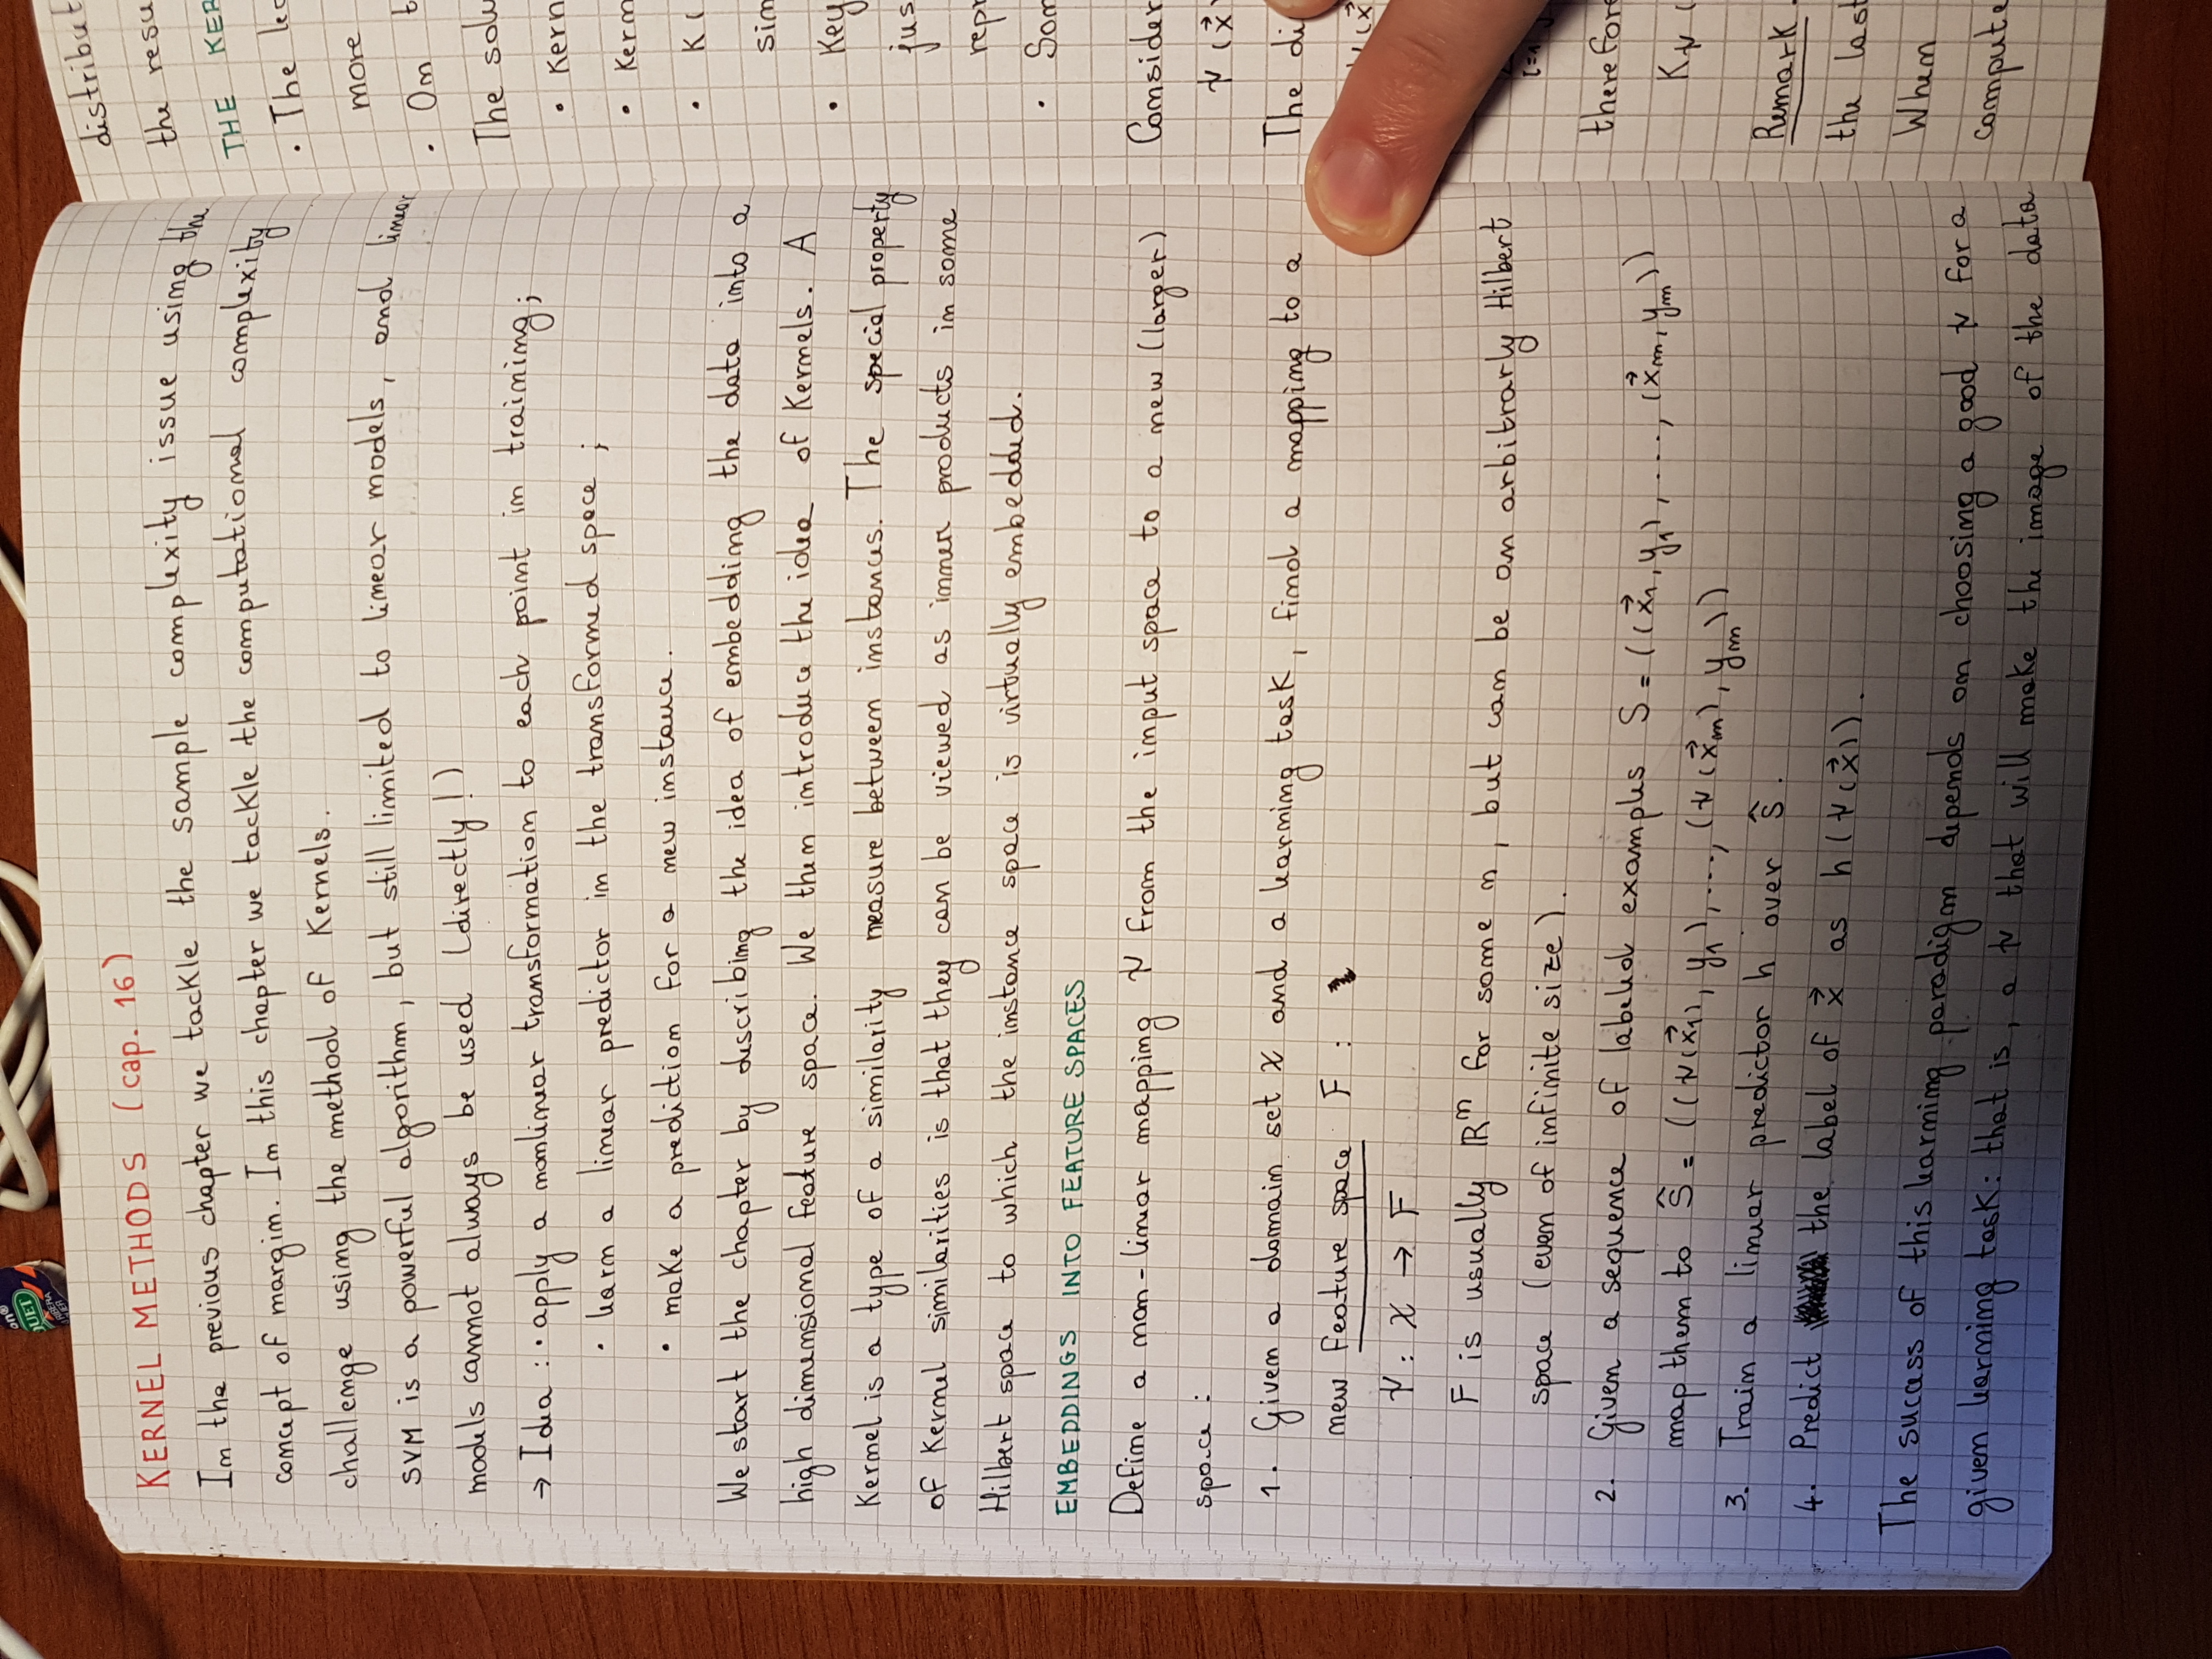 KERNEL METHODS (cap. 16)
In the previous chapter we tackle the sample complexity issue using the
concept of margin. In this chapter we tackle the computational complexity
challenge using the method of Kernels.
SVM is a powerful algorithm, but still limited to linear models, and linear
models cannot always be used (directly!)
→ Idea : · apply a nonlinear transformation to each point in training;
· learn a linear predictor in the transformed space ;
· make a prediction for a new instance.
We start the chapter by describing the idea of embedding the data into a
high dimensional feature space. We then introduce the idea of Kernels. A
Kernel is a type of a similarity measure between instances. The special property
of Kernel similarities is that they can be viewed as inner products in some
Hilbert space to which the instance space is virtually embedded.
EMBEDDINGS INTO FEATURE SPACES
Define a non-linear mapping ψ from the input space to a new (larger)
space :
1. Given a domain set χ and a learning task, find a mapping to a
new feature space F :
ψ : χ → F
F is usually ℝⁿ for some n, but can be an arbitrarly Hilbert
space (even of infinite size).
2. Given a sequence of labeled examples S = ((x⃗₁, y₁), ..., (x⃗ₘ, yₘ))
map them to Ŝ = ((ψ(x⃗₁), y₁), ..., (ψ(x⃗ₘ), yₘ))
3. Train a linear predictor h over Ŝ.
4. Predict the label of x⃗ as h(ψ(x⃗)).
The success of this learning paradigm depends on choosing a good ψ for a
given learning task: that is, a ψ that will make the image of the data
distribut
the resu
THE KER
· The le
more
· On t
The solu
· Kern
· Kern
· K (
sim
· Key
jus
repr
· Som
Consider
ψ (x⃗)
The di
ψ (x⃗
i=1
therefore
Kψ (
Remark.
the last
When
compute